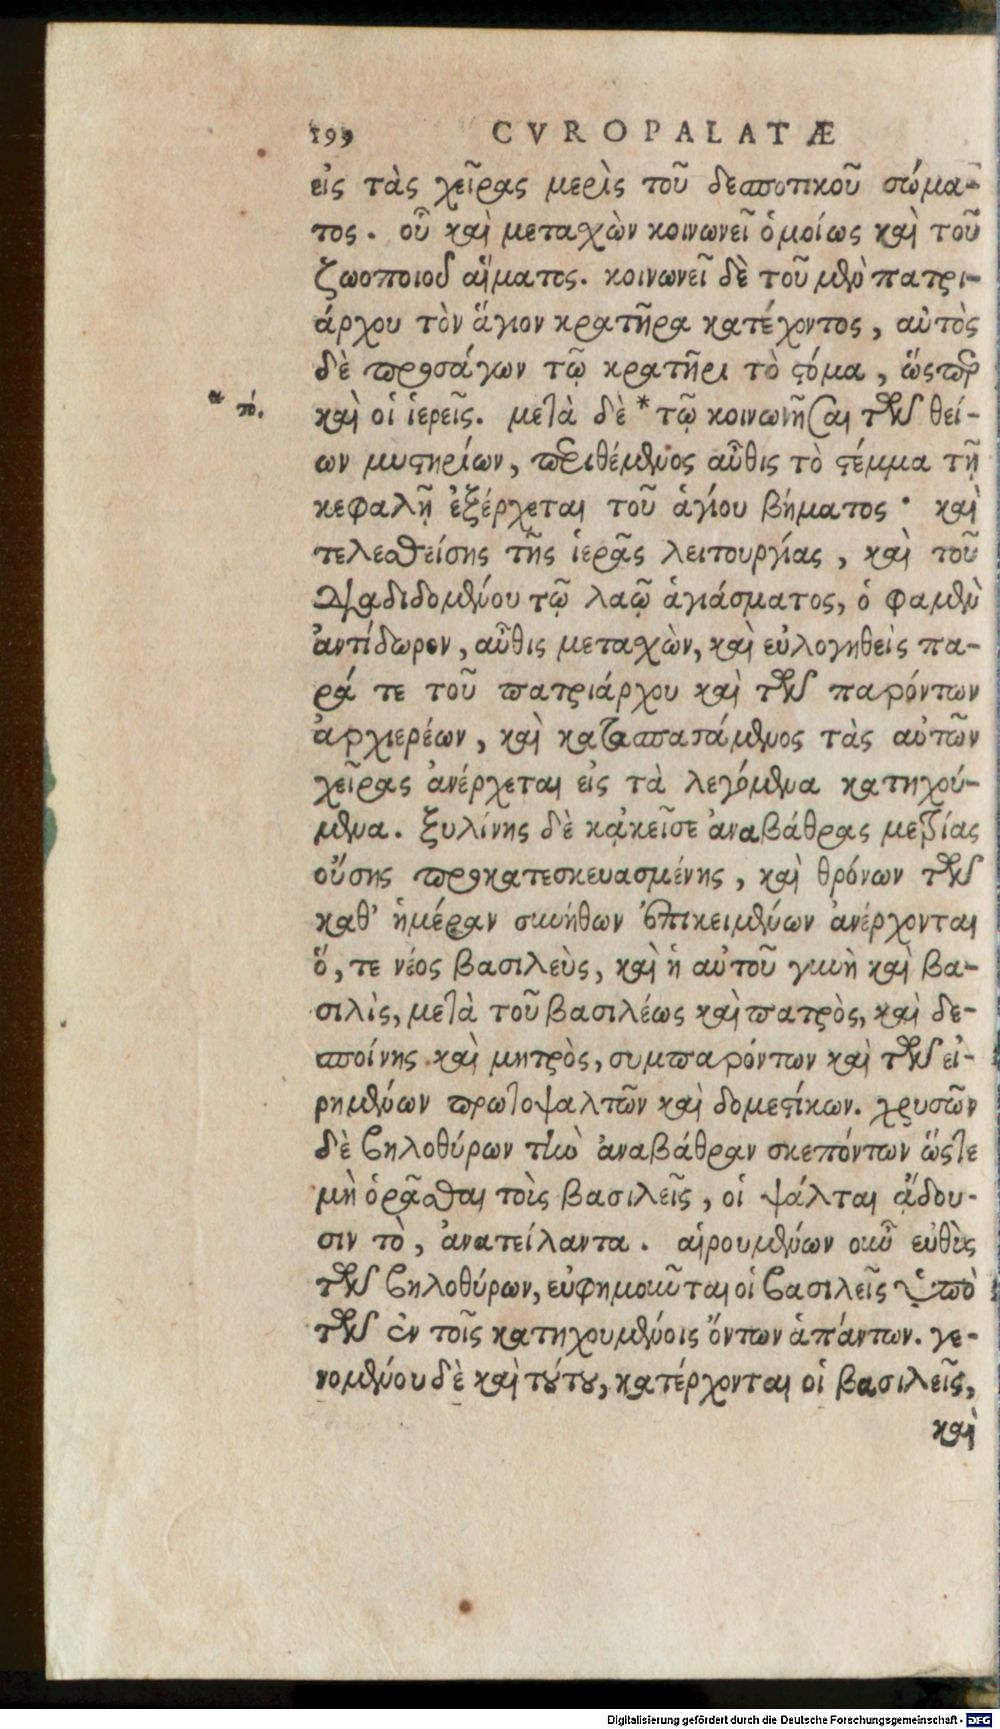 199 CVROPALATÆ
εἰς τὰς χεῖρας μερὶς τοῦ δεσποτικοῦ σώμα-
τος. οὗ καὶ μεταχὼν κοινωνεῖ ὁμοίως καὶ τοῦ
ζωοποιοῦ αἵματος. κοινωνεῖ δὲ τοῦ μὲν πατρι-
άρχου τὸν ἅγιον κρατῆρα κατέχοντος, αὐτὸς
δὲ προσάγων τῷ κρατῆρι τὸ στόμα, ὥςπερ
* τό.
καὶ οἱ ἱερεῖς. μετὰ δὲ * τῷ κοινωνῆσαι τῶν θεί-
ων μυστηρίων, περιθέμενος αὖθις τὸ στέμμα τῇ
κεφαλῇ ἐξέρχεται τοῦ ἁγίου βήματος· καὶ
τελεσθείσης τῆς ἱερᾶς λειτουργίας, καὶ τοῦ
διαδιδομένου τῷ λαῷ ἁγιάσματος, ὁ φαμὲν
ἀντίδωρον, αὖθις μεταχὼν, καὶ εὐλογηθεὶς πα-
ρά τε τοῦ πατριάρχου καὶ τῶν παρόντων
ἀρχιερέων, καὶ κατασπασάμενος τὰς αὐτῶν
χεῖρας ἀνέρχεται εἰς τὰ λεγόμενα κατηχού-
μενα. ξυλίνης δὲ κᾀκεῖσε ἀναβάθρας μετρίας
οὔσης προκατεσκευασμένης, καὶ θρόνων τῶν
καθ' ἡμέραν συνήθων ἐπικειμένων ἀνέρχονται
ὅ, τε νέος βασιλεὺς, καὶ ἡ αὐτοῦ γυνὴ καὶ βα-
σιλὶς, μετὰ τοῦ βασιλέως καὶ πατρὸς, καὶ δε-
σποίνης καὶ μητρὸς, συμπαρόντων καὶ τῶν εἰ-
ρημένων πρωτοψαλτῶν καὶ δομεστίκων. χρυσῶν
δὲ βηλοθύρων τὴν ἀναβάθραν σκεπόντων ὥςτε
μὴ ὁρᾶσθαι τοὶς βασιλεῖς, οἱ ψάλται ᾄδου-
σιν τὸ, ἀνατείλαντα. αἰρουμένων οὖν εὐθὺς
τῶν βηλοθύρων, εὐφημοῦνται οἱ βασιλεῖς ὑπὸ
τῶν ἐν τοῖς κατηχουμένοις ὄντων ἁπάντων. γε-
νομένου δὲ καὶ τούτου, κατέρχονται οἱ βασιλεῖς,
καὶ
Digitalisierung gefördert durch die Deutsche Forschungsgemeinschaft - DFG